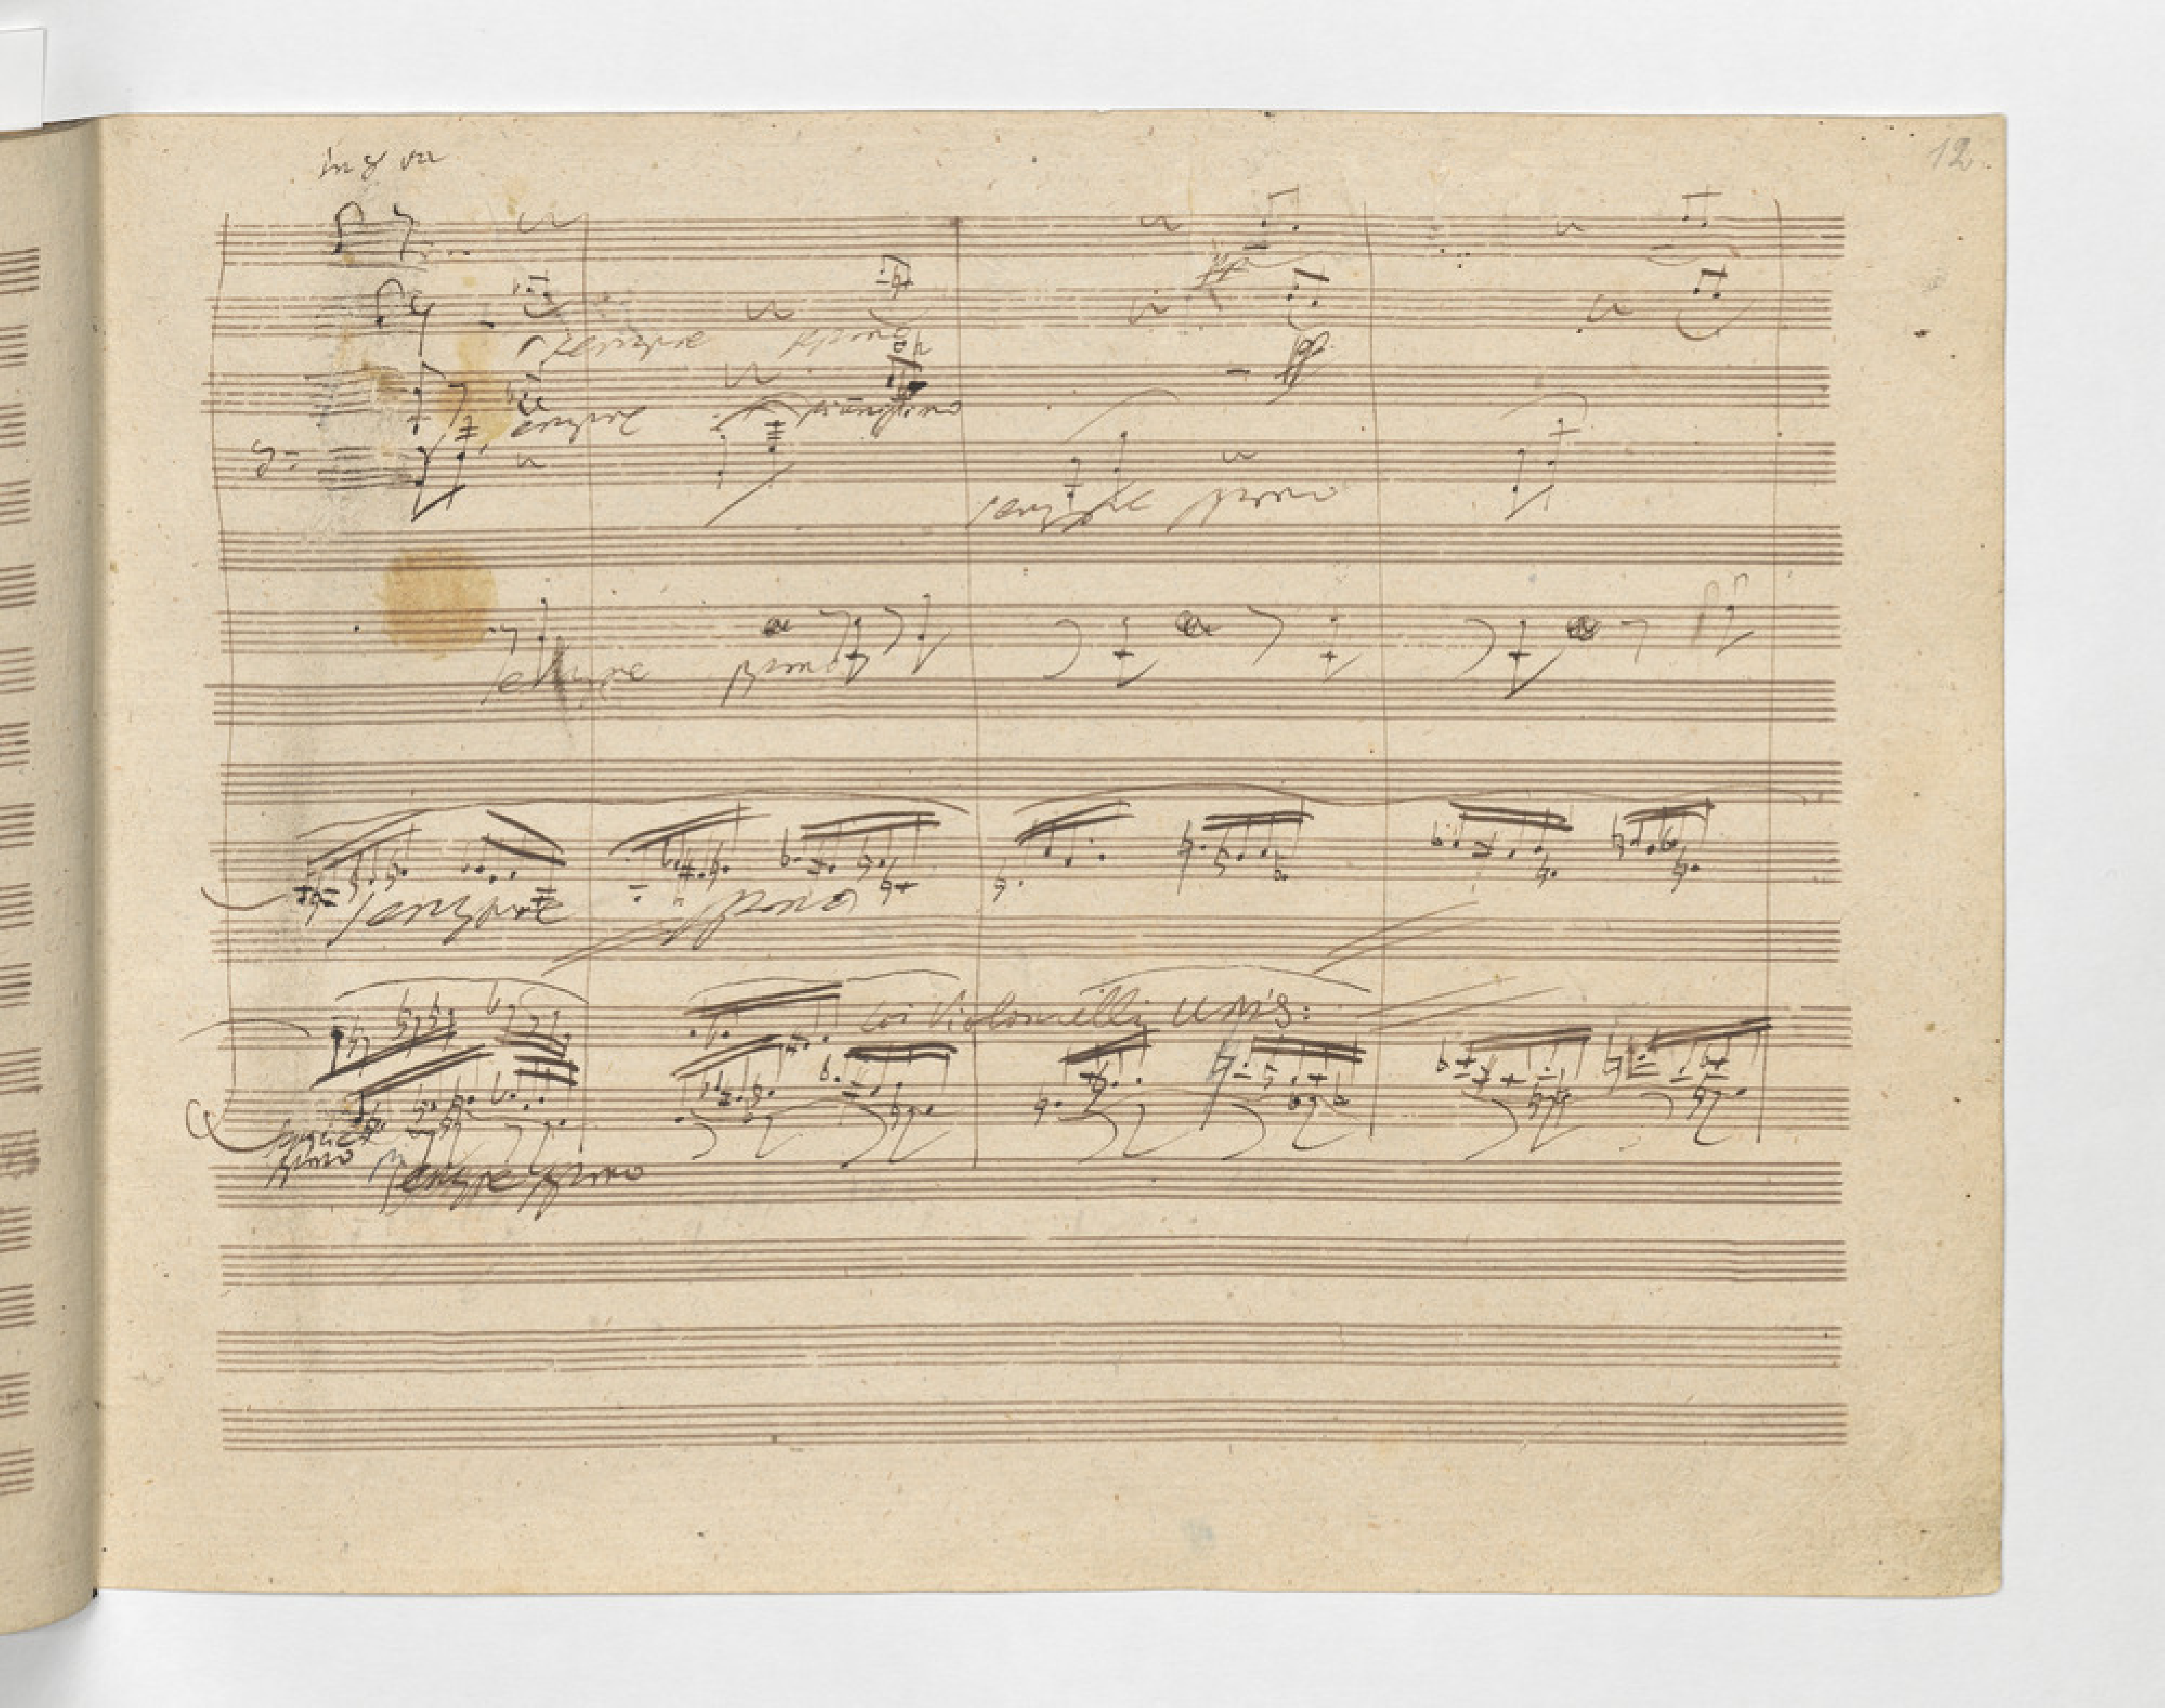 12.
in 8va
sempre ppmo
sempre pianissimo
sempre ppmo
sempre ppmo
sempre ppmo
coi Violoncelli unis:
sempre ppmo